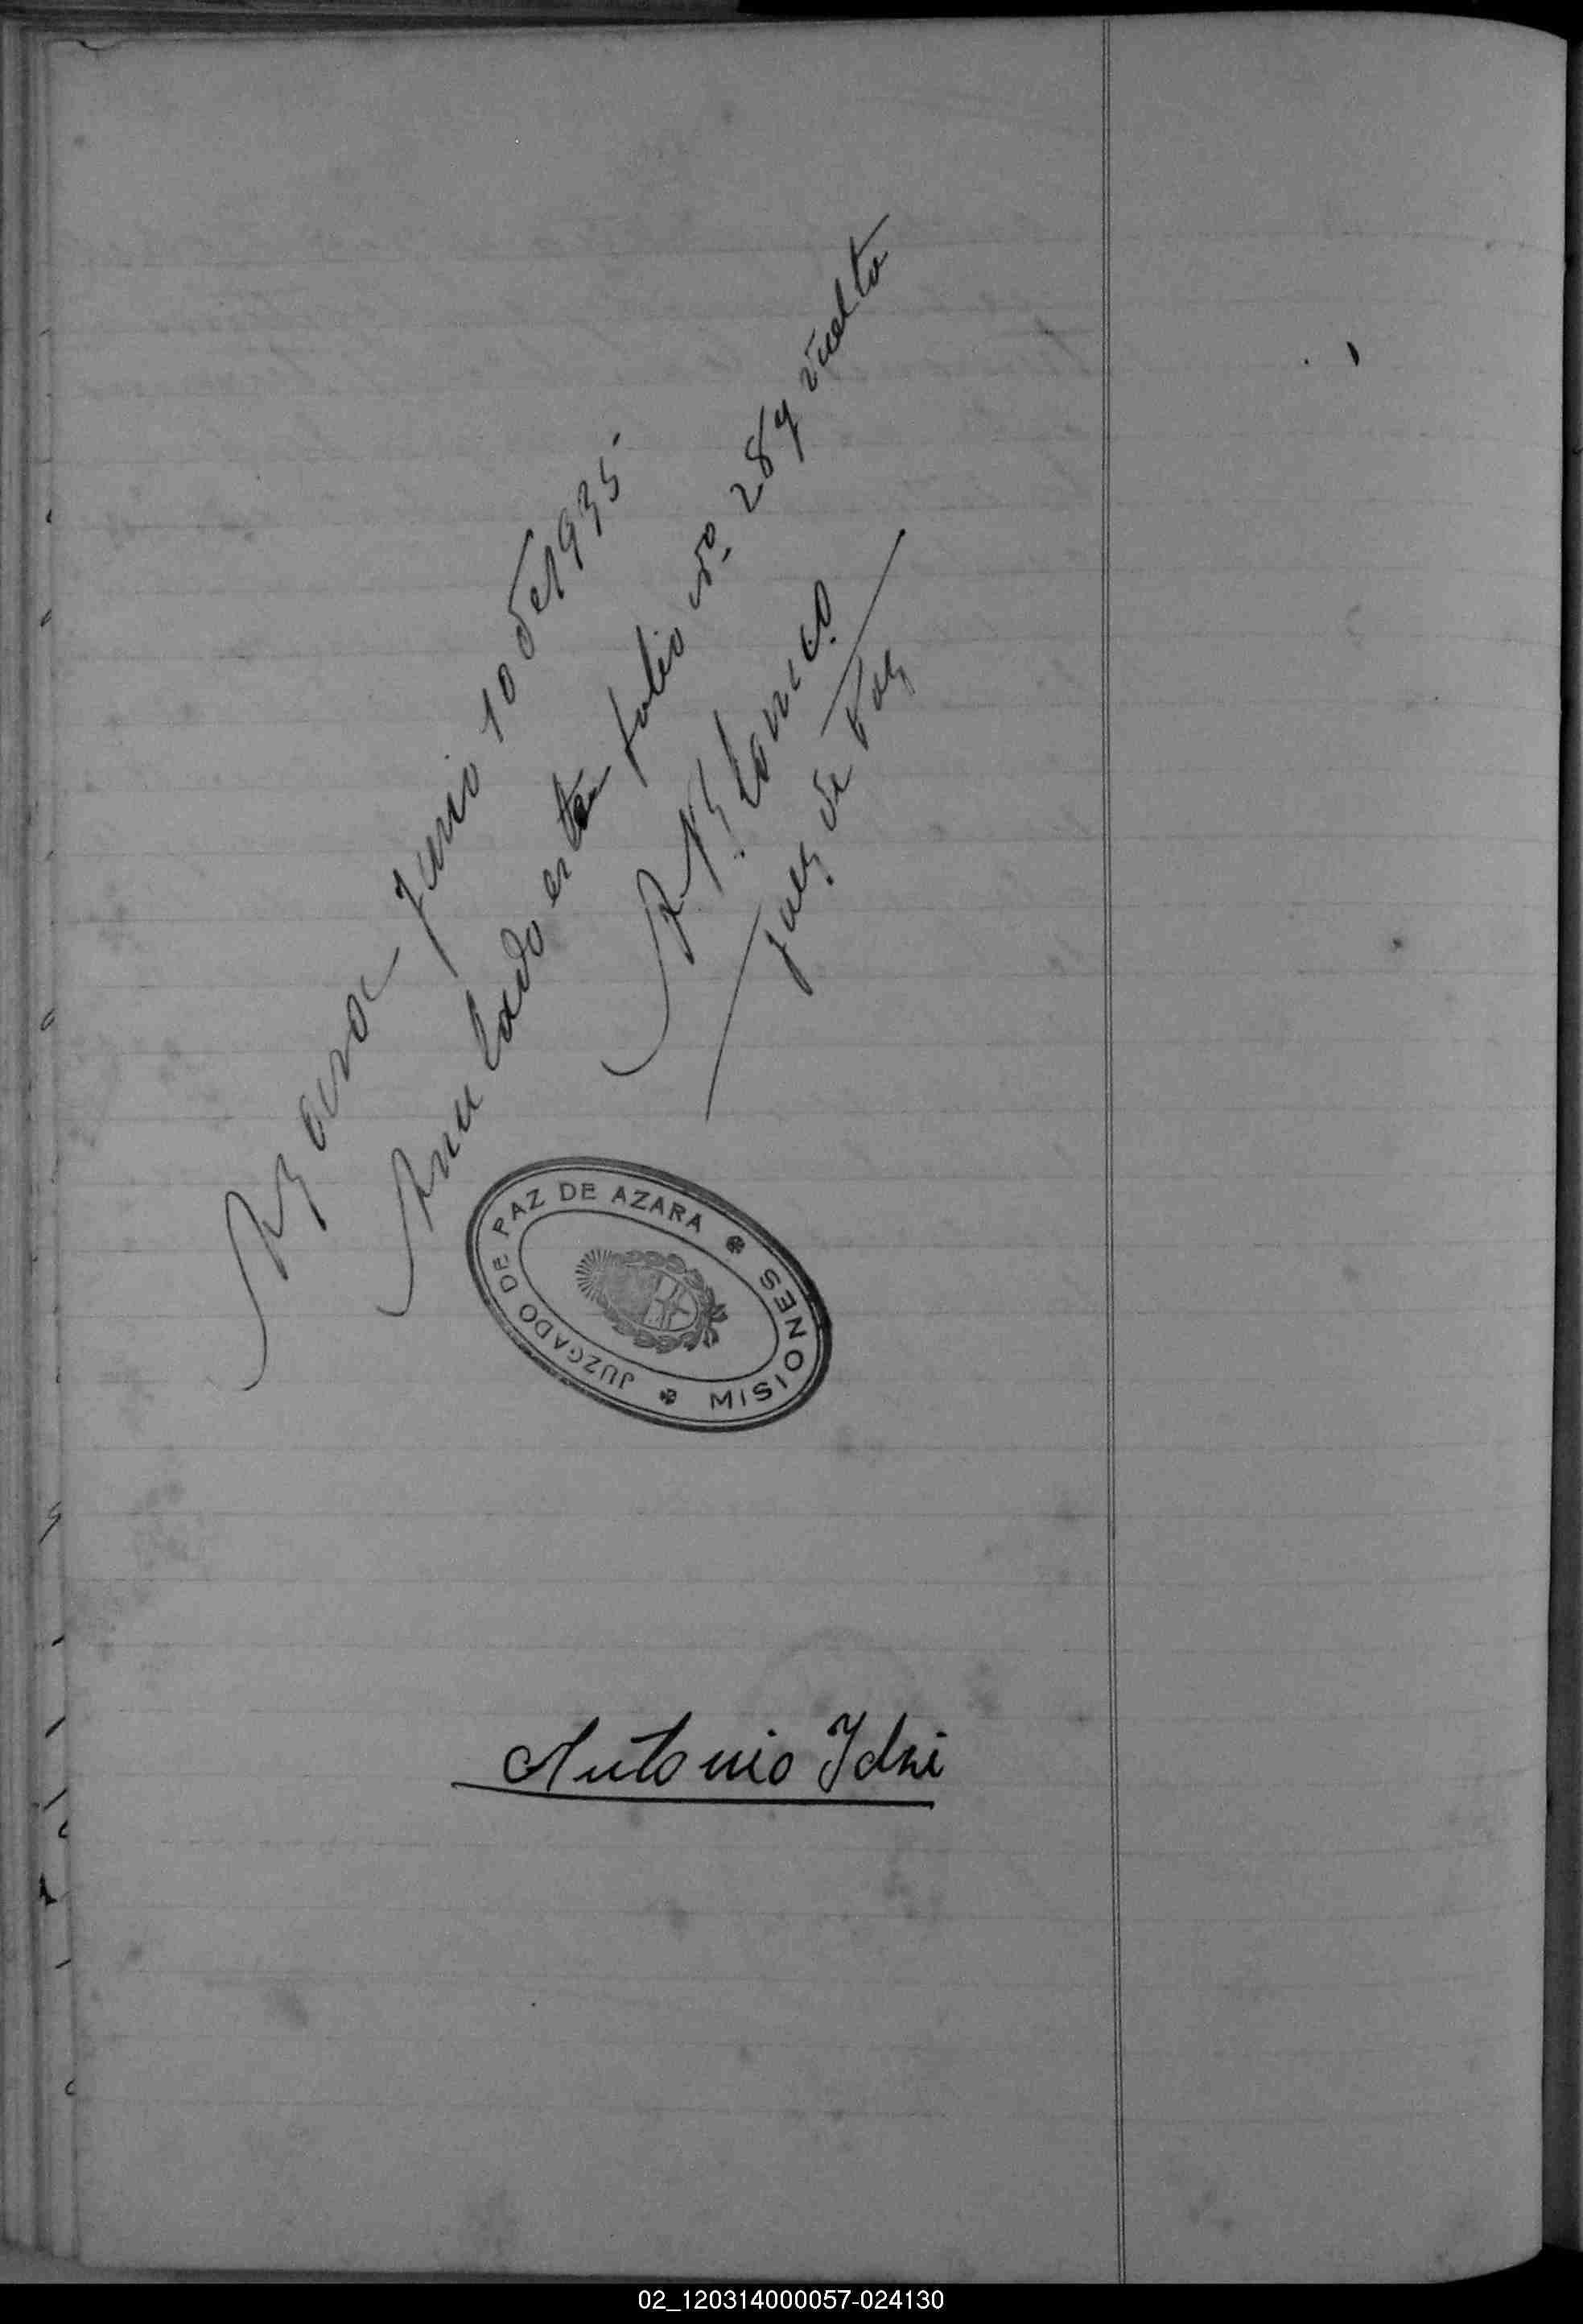 Azara Junio 10 de 1935
Anulado este folio No. 289 vuelta
Juez de Paz
JUZGADO DE PAZ DE AZARA * MISIONES *
Antonio Idni
02_120314000057-024130